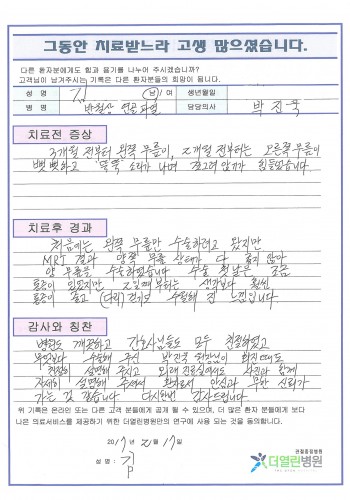 그동안 치료받느라 고생 많으셨습니다.
다른 환자분에게도 힘과 용기를 나누어 주시겠습니까?
고객님이 남겨주시는 기록은 다른 환자분들의 희망이 됩니다.
성 명 김 남/여 생년월일
병 명 반월상 연골 파열 담당의사 박진욱
치료전 증상
3개월 전부터 왼쪽 무릎이, 2개월 전부터는 오른쪽 무릎이
뻣뻣하고 "뚝뚝" 소리가 나며 쪼그려 앉기가 힘들었습니다
치료후 경과
처음에는 왼쪽 무릎만 수술하려고 왔지만
MRI 결과 양쪽 무릎 상태가 다 좋지 않아
양 무릎을 수술하였습니다 수술 첫날은 조금
통증이 있었지만 2일째부터는 생각보다 훨씬
통증이 줄고 (다리) 걷기도 수월해 진 느낌입니다
감사와 칭찬
병원도 깨끗하고 간호사님들도 모두 친절하였고
무엇보다 수술해 주신 박진욱 원장님이 회진때에도
친절히 설명해 주시고 외래 진료실에서도 사진과 함께
자세히 설명해 주셔서 환자로서 안심과 무한 신뢰가
가는 것 같습니다 다시한번 감사드립니다
위 기록은 온라인 또는 다른 고객 분들에게 공개 될 수 있으며, 더 많은 환자 분들에게 보다
나은 의료서비스를 제공하기 위한 더열린병원만의 연구에 사용 되는 것을 동의합니다.
2017년 2월 17일
성 명 : 김
관절중점병원
더열린병원